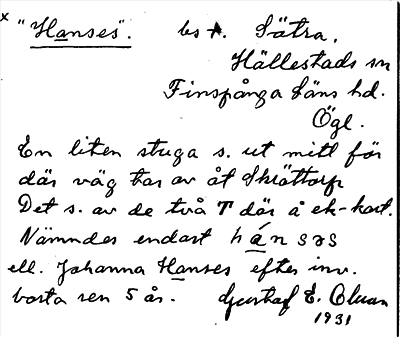 x "Hanses". bs T. Sätra.
Hällestads sn
Finspånga läns hd.
Ögl.
En liten stuga s. ut mitt för
där väg tar av åt Skrättorp
Det s. av de två T där å ek-kart.
Nämndes endast hánsəs
ell. Johanna Hanses efter inv.
borta sen 5 år. Gusthaf E. Oluan
1931